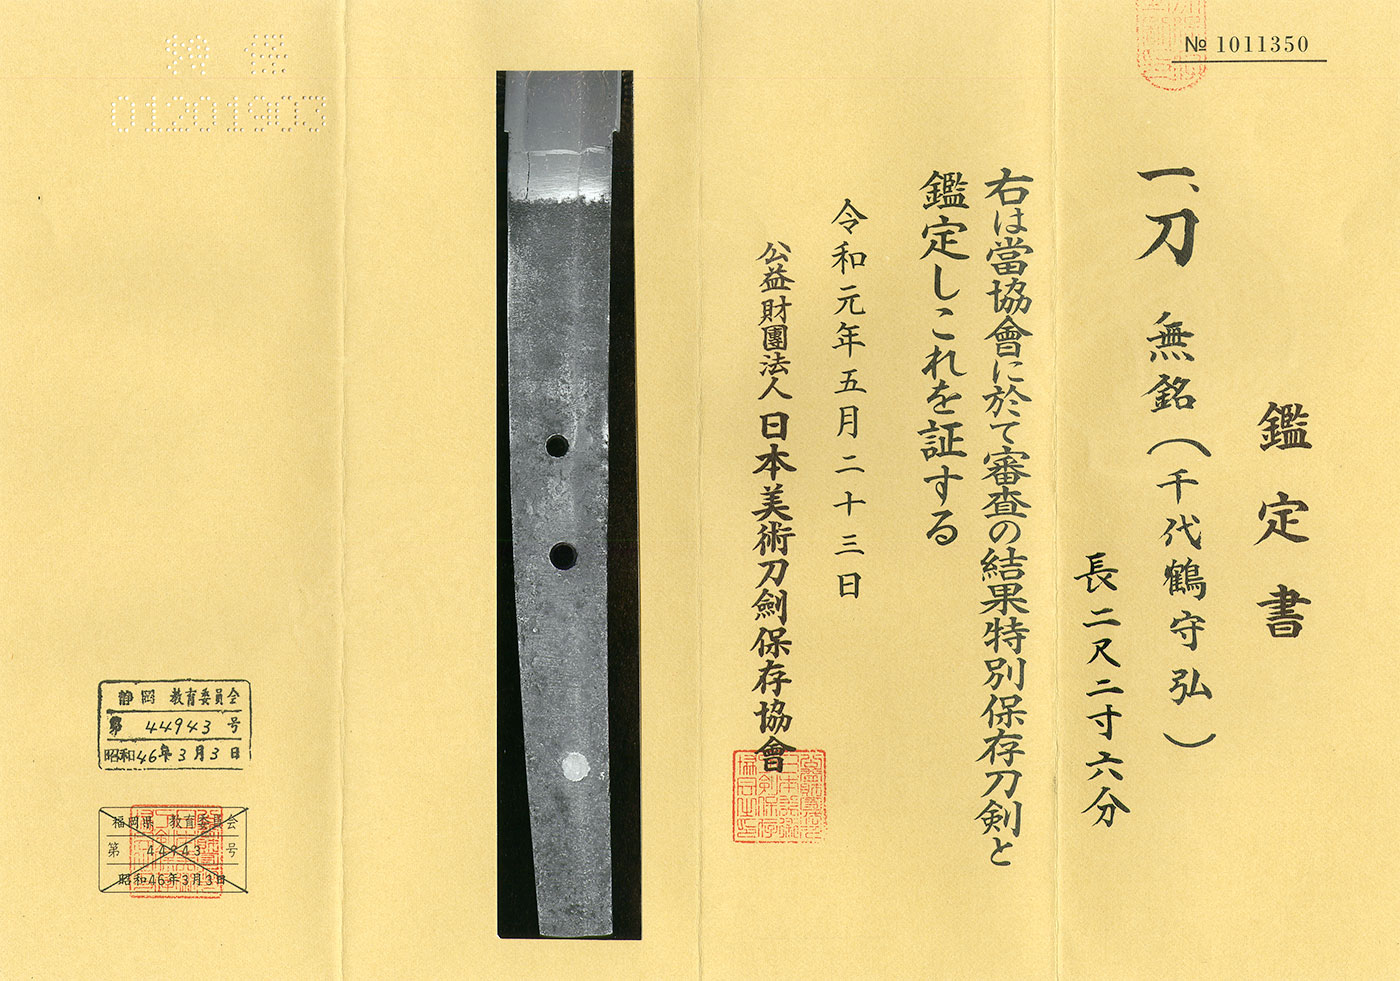 № 1011350
鑑定書
一、刀 無銘(千代鶴守弘)
長二尺二寸六分
右は當協會に於て審査の結果特別保存刀剣と
鑑定しこれを証する
令和元年五月二十三日
公益財團法人 日本美術刀劍保存協會
01201903
静岡 教育委員会
第 44943 号
昭和46年3月3日
福岡県 教育委員会
第 44943 号
昭和46年3月3日